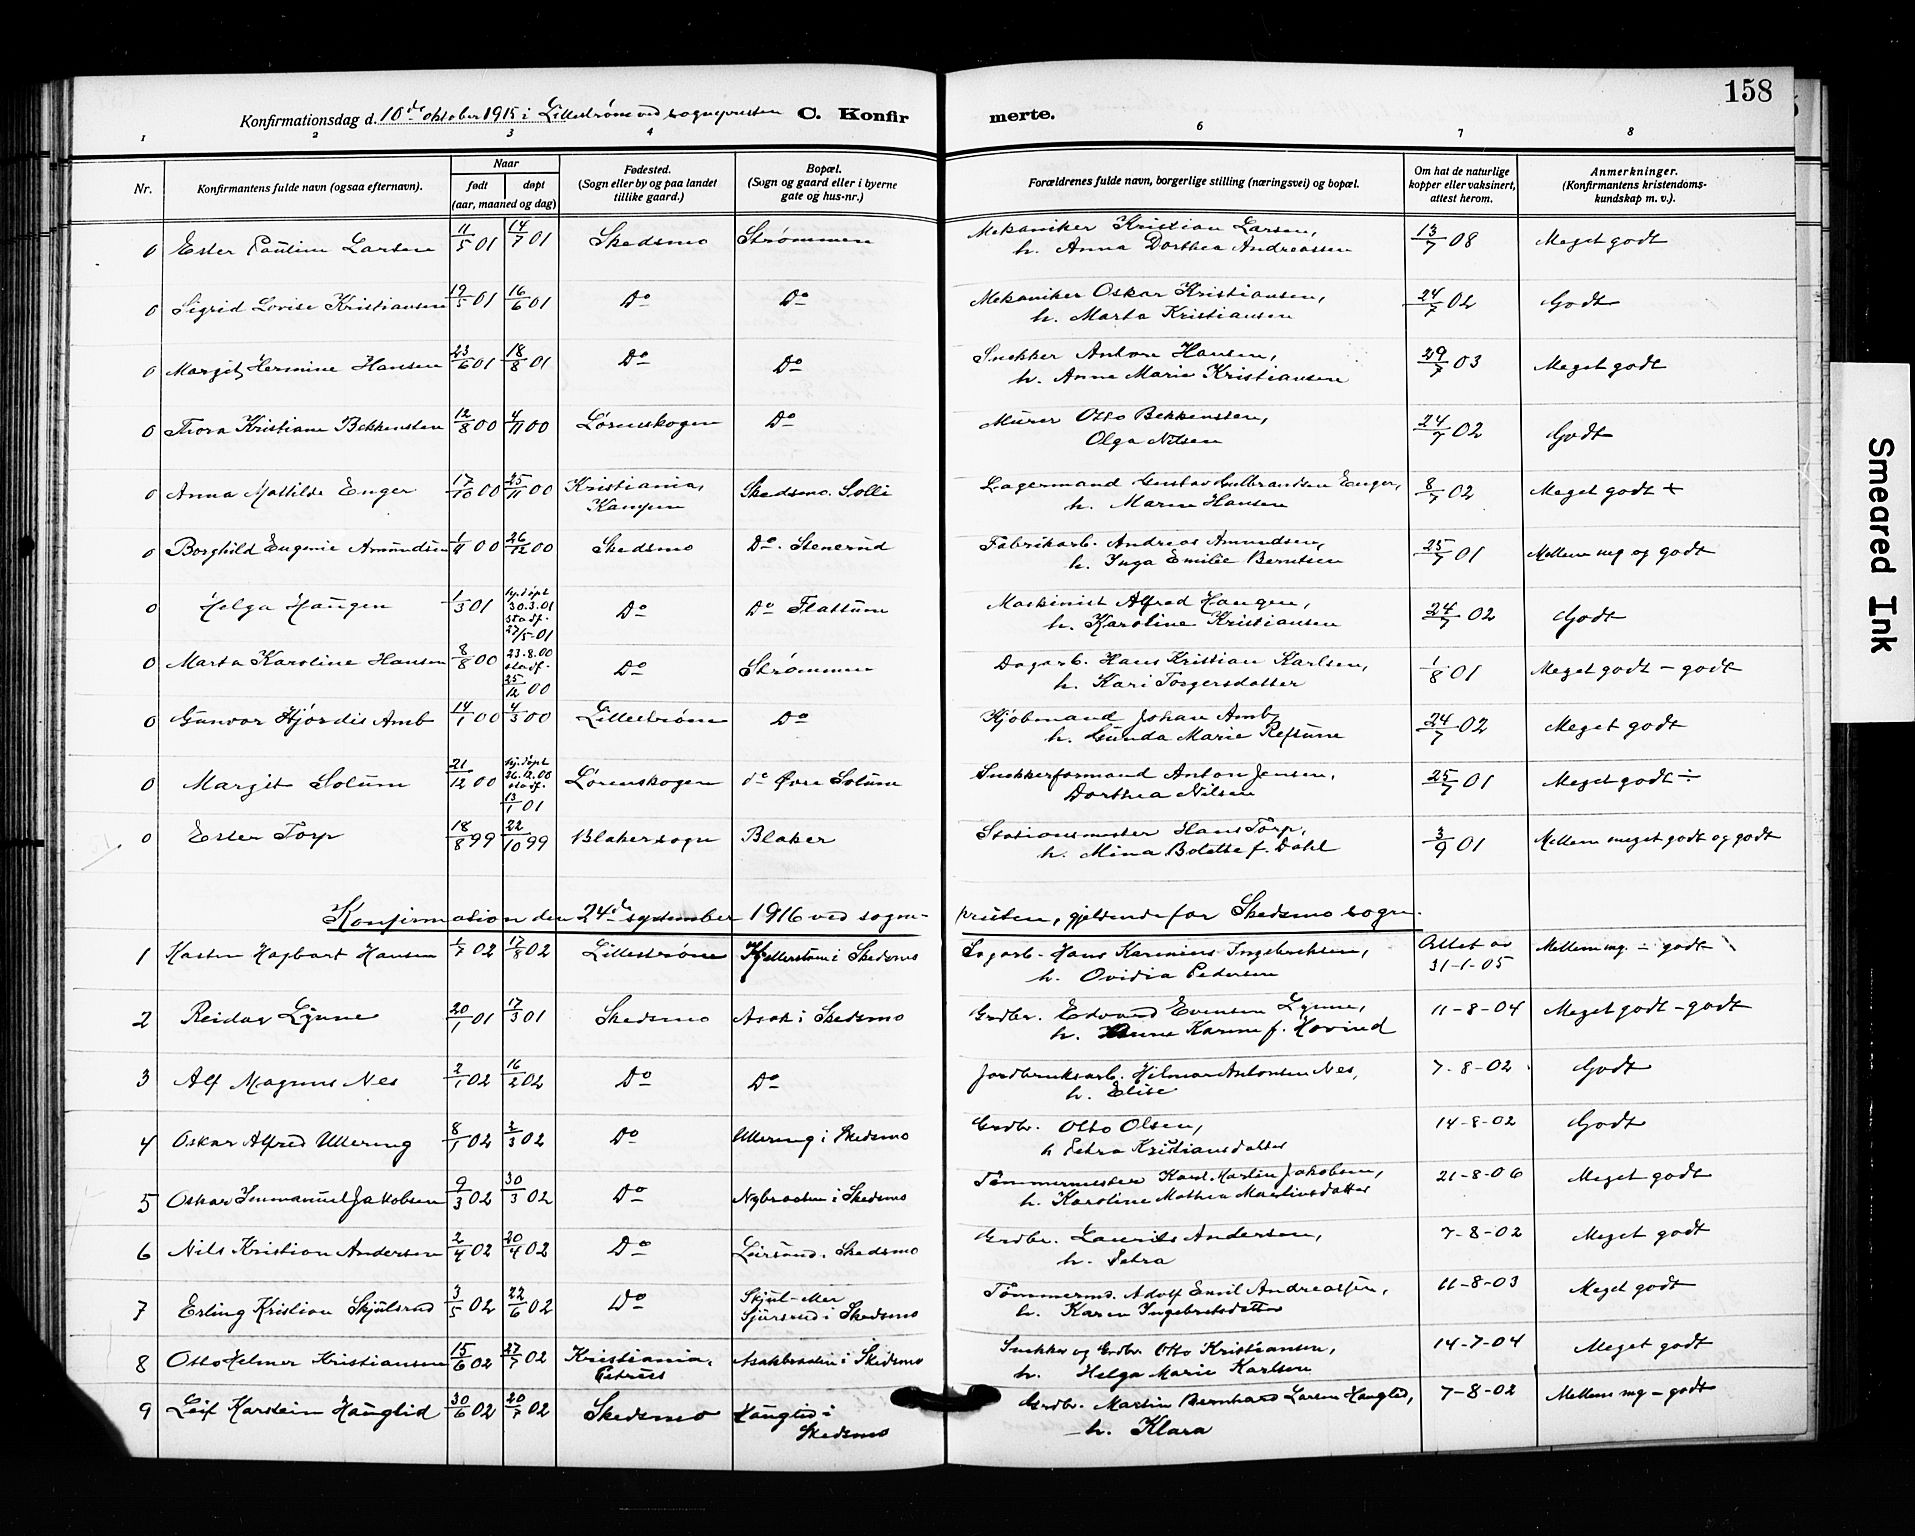 158
Konfirmationsdag d. 10de oktober 1915 i Lillestrøm ved sognepresten C. Konfirmerte.
1 2 3 4 6 7 8
Nr.
Konfirmantens fulde navn (ogsaa efternavn).
Naar
født døpt
(aar, maaned og dag)
Fødested.
(Sogn eller by og paa landet
tillike gaard.)
Bopæl.
(Sogn og gaard eller i byerne
gate og hus-nr.)
Forældrenes fulde navn, borgerlige stilling (næringsvei) og bopæl.
Om hat de naturlige
kopper eller vaksinert,
attest herom.
Anmerkninger.
(Konfirmantens kristendoms-
kundskap m. v.).
0 Ester Pauline Larsen 11/5 01 14/7 01 Skedsmo Strømmen Mekaniker Kristian Larsen, 13/7 08 Meget godt
h. Anna Dorthea Andreassen
0 Sigrid Lovise Kristiansen 19/5 01 16/6 01 Do Do Mekaniker Oskar Kristiansen, 24/7 02 Godt
h. Marta Kristiansen
0 Margit Hermine Hansen 23/6 01 18/8 01 Do Do Snekker Anton Hansen, 29/7 03 Meget godt
h. Anne Marie Kristiansen
0 Thora Kristiane Bekkensten 12/8 00 4/11 00 Lørenskogen Do Murer Otto Bekkensten, 24/7 02 Godt
Olga Nilsen
0 Anna Mathilde Enger 17/10 00 25/11 00 Kristiania, Skedsmo. Solli Lagermand Gustav Gulbrandsen Enger, 8/7 02 Meget godt +
Kampen h. Maren Hansen
0 Borghild Eugenie Amundsen 1/11 00 26/12 00 Skedsmo Do. Stenerud Fabrikarb. Andreas Amundsen, 25/7 01 Mellem mg og godt
h. Inga Emilie Berntsen
0 Helga Haugen 1/3 01 hj.døpt 30.3.01 stadf. 27/5-01 Do Do Flattum Maskinist Alfred Haugen, 24/7 02 Godt
h. Karoline Kristiansen
0 Marta Karoline Hansen 8/8 00 23.8.00 stadf. 25/12 00 Do Strømmen Dagarb. Hans Kristian Karlsen, 1/8 01 Meget godt - godt
h. Kari Torgersdatter
0 Gunvor Hjørdis Amb 14/1 00 4/3 00 Lillestrøm Do Kjøbmand Johan Amb, 24/7 02 Meget godt
h. Gunda Marie Refsum
0 Margit Solum 21/12 00 hj.døpt 26.12.00 stadf. 13/1 01 Lørenskogen do Øvre Solum Snekkerformand Anton Jensen, 25/7 01 Meget godt ÷
Dorthea Nilsen
0 Ester Torp 18/8 99 22/10 99 Blaker sogn Blaker Stationsmester Hans Torp, 3/9 01 Mellem meget godt og godt
h. Mina Bolette f. Dahl
Konfirmation den 24de september 1916 ved sogne-presten, gjeldende for Skedsmo sogn.
1 Karsten Hagbart Hansen 1/7 02 17/8 02 Lillestrøm Kjellerstøm i Skedsmo Sagarb. Hans Karenius Ingebrethsen, Attest av Mellem mg. - godt
h. Ovidia Pedersen 31-1-05
2 Reidar Lynne 20/1 01 17/3 01 Skedsmo Asak i Skedsmo Grdbr. Edvard Evensen Lynne, 11-8-04 Meget godt - godt
h. Anne Karine f. Hovind
3 Alf Magnus Nes 2/1 02 16/2 02 Do Do Jordbruksarb. Hilmar Antonsen Nes, 7-8-02 Godt
h. Elise
4 Oskar Alfred Ullering 8/1 02 2/3 02 Do Ullering i Skedsmo Grdbr. Otto Olsen, 14-8-02 Godt
h Petra Kristiansdatter
5 Oskar Immanuel Jakobsen 9/3 02 30/3 02 Do Nybraaten i Skedsmo Tømmermester Karl Martin Jakobsen, 21-8-06 Meget godt
h. Karoline Mathea Martinsdatter
6 Nils Kristian Andersen 2/4 02 20/4 02 Do Leirsund. Skedsmo Grdbr. Laurits Andersen, 7-8-02 Meget godt
h. Petra
7 Erling Kristian Skjulsrud 3/5 02 22/6 02 Do Skjul- eller Tømmerm. Adolf Emil Andreassen, 11-8-03 Meget godt
Sjursrud i Skedsmo h. Karen Ingebretsdatter
8 Otto Helmer Kristiansen 15/6 02 27/7 02 Kristiania, Asakbraaten i Skedsmo Snekker og Grdbr. Otto Kristiansen, 14-7-04 Meget godt
Petrus h. Helga Marie Karlsen
9 Leif Karstein Hauglid 30/6 02 20/7 02 Skedsmo Hauglid i Grdbr. Martin Bernhard Larsen Hauglid, 7-8-02 Mellem mg - godt
Skedsmo h. Klara
Smeared Ink